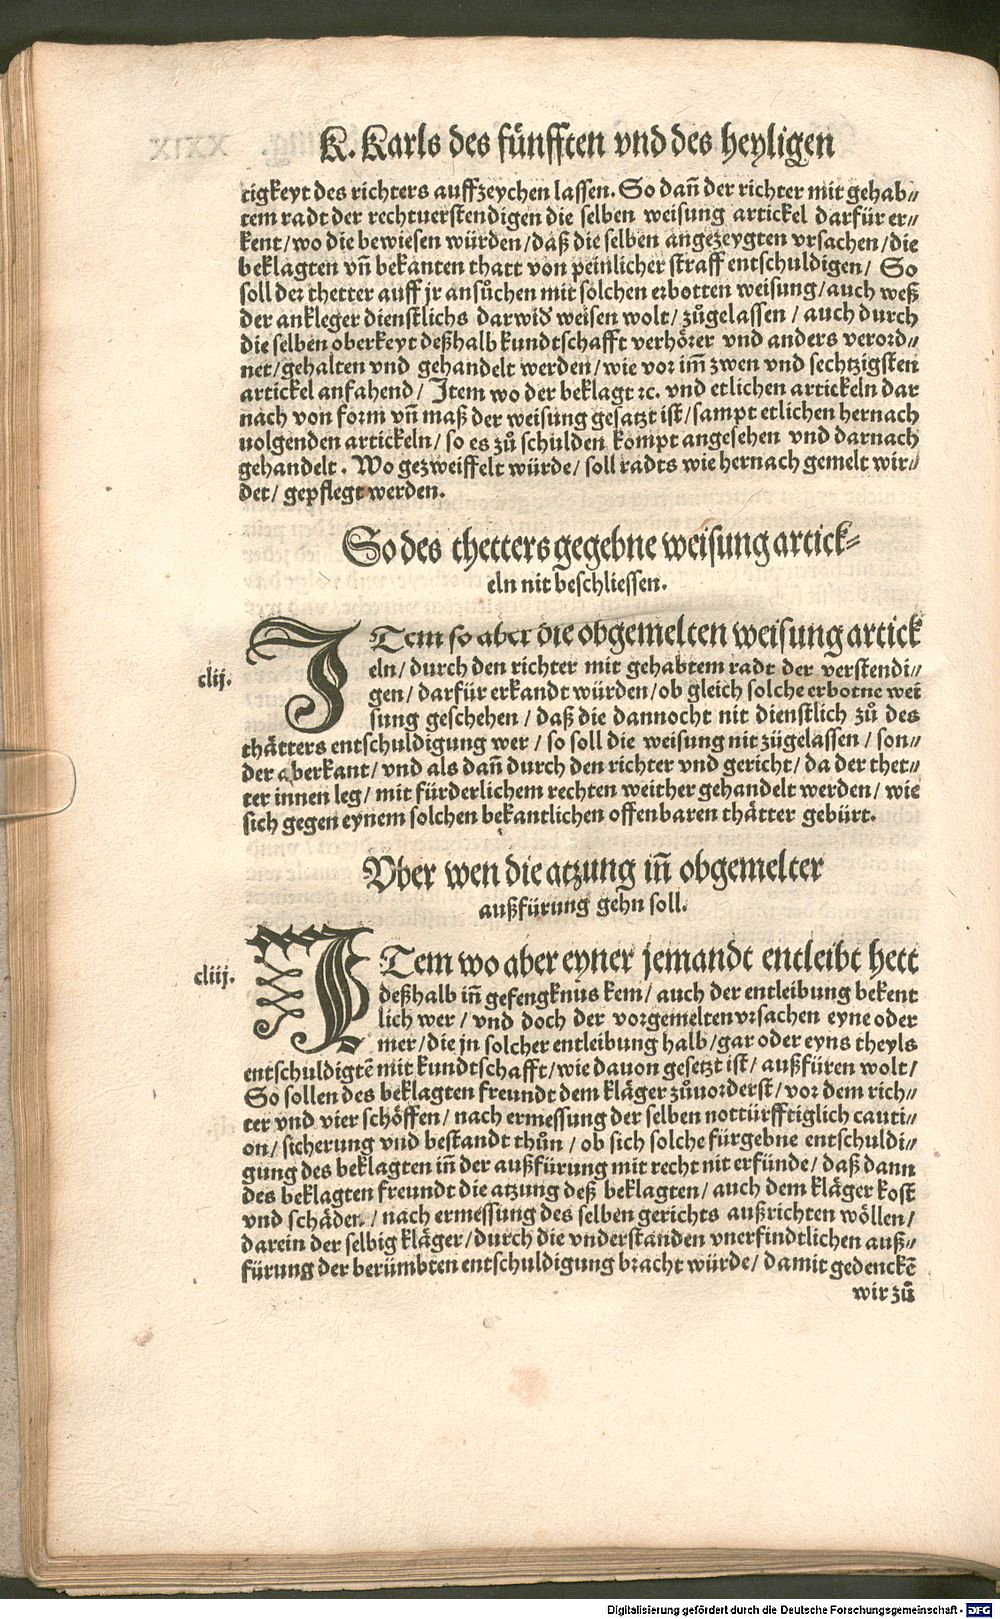 K. Karls des fünfften vnd des heyligen
tigkeyt des richters auffzeychen lassen. So dañ der richter mit gehab⸗
tem radt der rechtuerstendigen die selben weisung artickel darfür er⸗
kent/ wo die bewiesen würden/ daß die selben angezeygten vrsachen/ die
beklagten vñ bekanten thatt von peinlicher straff entschuldigen/ So
soll der thetter auff jr ansůchen mit solchen erbotten weisung/ auch weß
der ankleger dienstlichs darwid̕ weisen wolt/ zůgelassen/ auch durch
die selben oberkeyt deßhalb kundtschafft verhörer vnd anders verord⸗
net/ gehalten vnd gehandelt werden/ wie vor im̃ zwen vnd sechtzigsten
artickel anfahend/ Item wo der beklagt ꝛc. vnd etlichen artickeln dar
nach von form vñ maß der weisung gesatzt ist/ sampt etlichen hernach
uolgenden artickeln/ so es zů schulden kompt angesehen vnd darnach
gehandelt. Wo gezweiffelt würde/ soll radts wie hernach gemelt wir⸗
det/ gepflegt werden.
So des thetters gegebne weisung artick⸗
eln nit beschliessen.
clij.
ITem so aber die obgemelten weisung artick
eln/ durch den richter mit gehabtem radt der verstendi⸗
gen/ darfür erkandt würden/ ob gleich solche erbotne wei
sung geschehen/ daß die dannocht nit dienstlich zů des
thätters entschuldigung wer/ so soll die weisung nit zügelassen/ son⸗
der aberkant/ vnd als dañ durch den richter vnd gericht/ da der thet⸗
ter innen leg/ mit fürderlichem rechten weither gehandelt werden/ wie
sich gegen eynem solchen bekantlichen offenbaren thätter gebürt.
Vber wen die atzung iñ obgemelter
außfürung gehn soll.
cliij.
ITem wo aber eyner jemandt entleibt hett
deßhalb iñ gefengknüs kem/ auch der entleibung bekent
lich wer/ vnd doch der vorgemelten vrsachen eyne oder
mer/ die jn solcher entleibung halb/ gar oder eyns theyls
entschuldigtẽ mit kundtschafft/ wie dauon gesetzt ist/ außfüren wolt/
So sollen des beklagten freundt dem kläger zůuorderst/ vor dem rich⸗
ter vnd vier schöffen/ nach ermessung der selben nottürfftiglich cauti⸗
on/ sicherung vnd bestandt thůn/ ob sich solche fürgebne entschuldi⸗
gung des beklagten iñ der außfürung mit recht nit erfünde/ daß dann
des beklagten freundt die atzung deß beklagten/ auch dem kläger kost
vnd schäden/ nach ermessung des selben gerichts außrichten wöllen/
darein der selbig kläger/ durch die vnderstanden vnerfindtlichen auß⸗
fürung der berümbten entschuldigung bracht würde/ damit gedenckẽ
wir zů
Digitalisierung gefördert durch die Deutsche Forschungsgemeinschaft - DFG